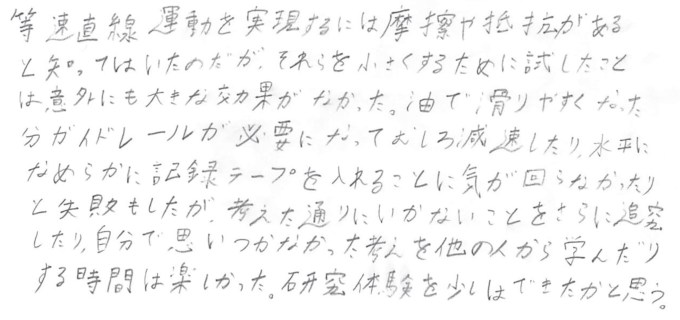 等速直線運動を実現するには摩擦や抵抗がある
と知ってはいたのだが、それらを小さくするために試したこと
は、意外にも大きな効果がなかった。油で滑りやすくなった
分ガイドレールが必要になってむしろ減速したり、水平に
なめらかに記録テープを入れることに気が回らなかったり
と失敗もしたが、考えた通りにいかないことをさらに追究
したり、自分で思いつかなかった考えを他の人から学んだり
する時間は楽しかった。研究体験を少しはできたかと思う。